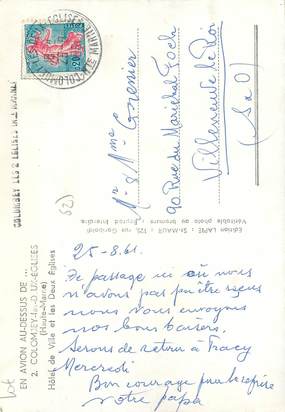 25-8.61.
De passage ici où nous
n'avons pas pu être reçus
nous vous envoyons
nos bons baisers.
Serons de retour à Tracy
Mercredi
Bon courage pour le
votre papa
Mr & Mme Grenier
90 Rue du Maréchal Foch
Villeneuve le Roi
(S&O)
EN AVION AU-DESSUS DE ...
2. COLOMBEY-les-DEUX-EGLISES
(Haute-Marne)
Hôtel de Ville et les Deux Églises
Edition LAPIE : St-MAUR : 123, rue Garibaldi
Véritable photo au bromure : Reprod. Interdite
COLOMBEY LES 2 EGLISES
HTE MARNE
0,20